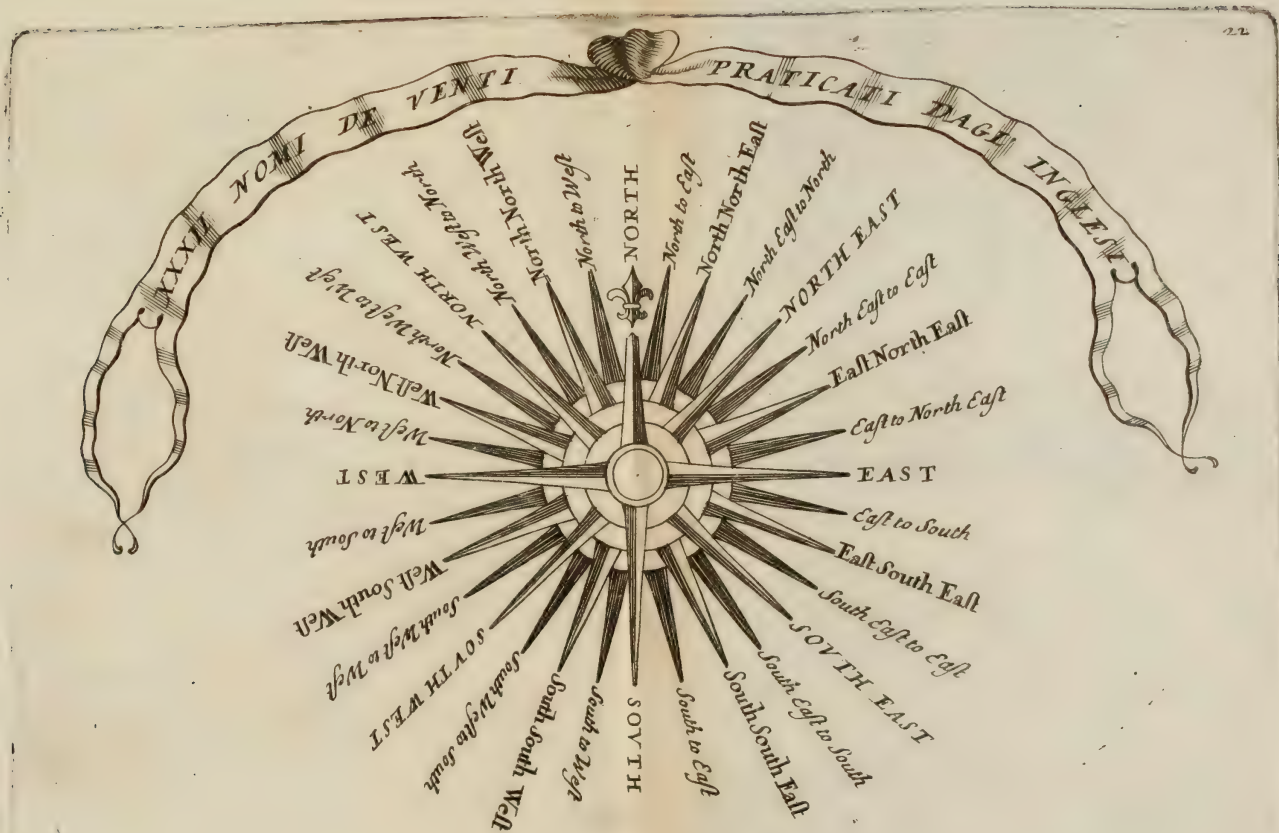 22
XXXII NOMI DE VENTI PRATICATI DAGL' INGLESI
NORTH
North to Eaſt
North North Eaſt
North Eaſt to North
NORTH EAST
North Eaſt to Eaſt
Eaſt North Eaſt
Eaſt to North Eaſt
EAST
Eaſt to South
Eaſt South Eaſt
South Eaſt to Eaſt
SOVTH EAST
South Eaſt to South
South South Eaſt
South to Eaſt
SOVTH
South to Weſt
South South Weſt
South Weſt to South
SOVTH WEST
South Weſt to Weſt
Weſt South Weſt
Weſt to South
WEST
Weſt to North
Weſt North Weſt
North Weſt to Weſt
NORTH WEST
North Weſt to North
North North Weſt
North to Weſt